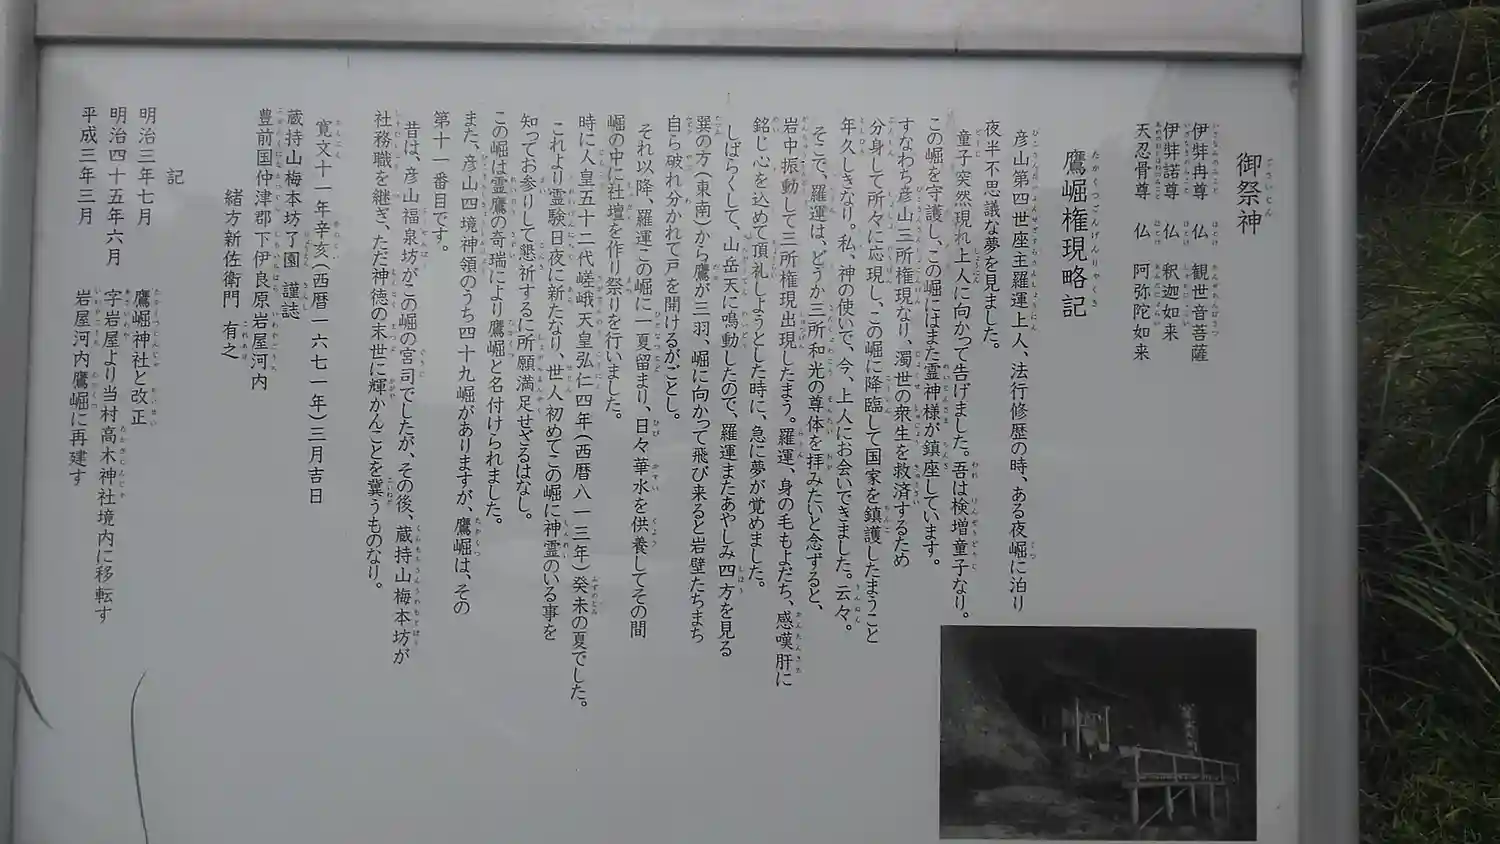 御祭神
伊弉冉尊 仏 観世音菩薩
伊弉諾尊 仏 釈迦如来
天忍骨尊 仏 阿弥陀如来
鷹崛権現略記
彦山第四世座主羅運上人、法行修歴の時、ある夜崛に泊り
夜半不思議な夢を見ました。
童子突然現れ上人に向かって告げました。吾は検増童子なり。
この崛を守護し、この崛にはまた霊神様が鎮座しています。
すなわち彦山三所権現なり、濁世の衆生を救済するため
分身して所々に応現し、この崛に降臨して国家を鎮護したまうこと
年久しきなり。私、神の使いで、今、上人にお会いできました。云々。
そこで、羅運は、どうか三所和光の尊体を拝みたいと念ずると、
岩中振動して三所権現出現したまう。羅運、身の毛もよだち、感嘆肝に
銘じ心を込めて頂礼しようとした時に、急に夢が覚めました。
しばらくして、山岳天に鳴動したので、羅運またあやしみ四方を見る
巽の方(東南)から鷹が三羽、崛に向かって飛び来ると岩壁たちまち
自ら破れ分かれて戸を開けるがごとし。
それ以降、羅運この崛に一夏留まり、日々華水を供養してその間
崛の中に社壇を作り祭りを行いました。
時に人皇五十二代嵯峨天皇弘仁四年(西暦八一三年)癸未の夏でした。
これより霊験日夜に新たなり、世人初めてこの崛に神霊のいる事を
知ってお参りして懇祈するに所願満足せざるはなし。
この崛は霊鷹の奇瑞により鷹崛と名付けられました。
また、彦山四境神領のうち四十九崛がありますが、鷹崛は、その
第十一番目です。
昔は、彦山福泉坊がこの崛の宮司でしたが、その後、蔵持山梅本坊が
社務職を継ぎ、ただ神徳の末世に輝かんことを冀うものなり。
寛文十一年辛亥(西暦一六七一年)三月吉日
蔵持山梅本坊了園 謹誌
豊前国仲津郡下伊良原岩屋河内
緒方新佐衛門 有之
記
明治三年七月 鷹崛神社と改正
明治四十五年六月 字岩屋より当村高木神社境内に移転す
平成三年三月 岩屋河内鷹崛に再建す